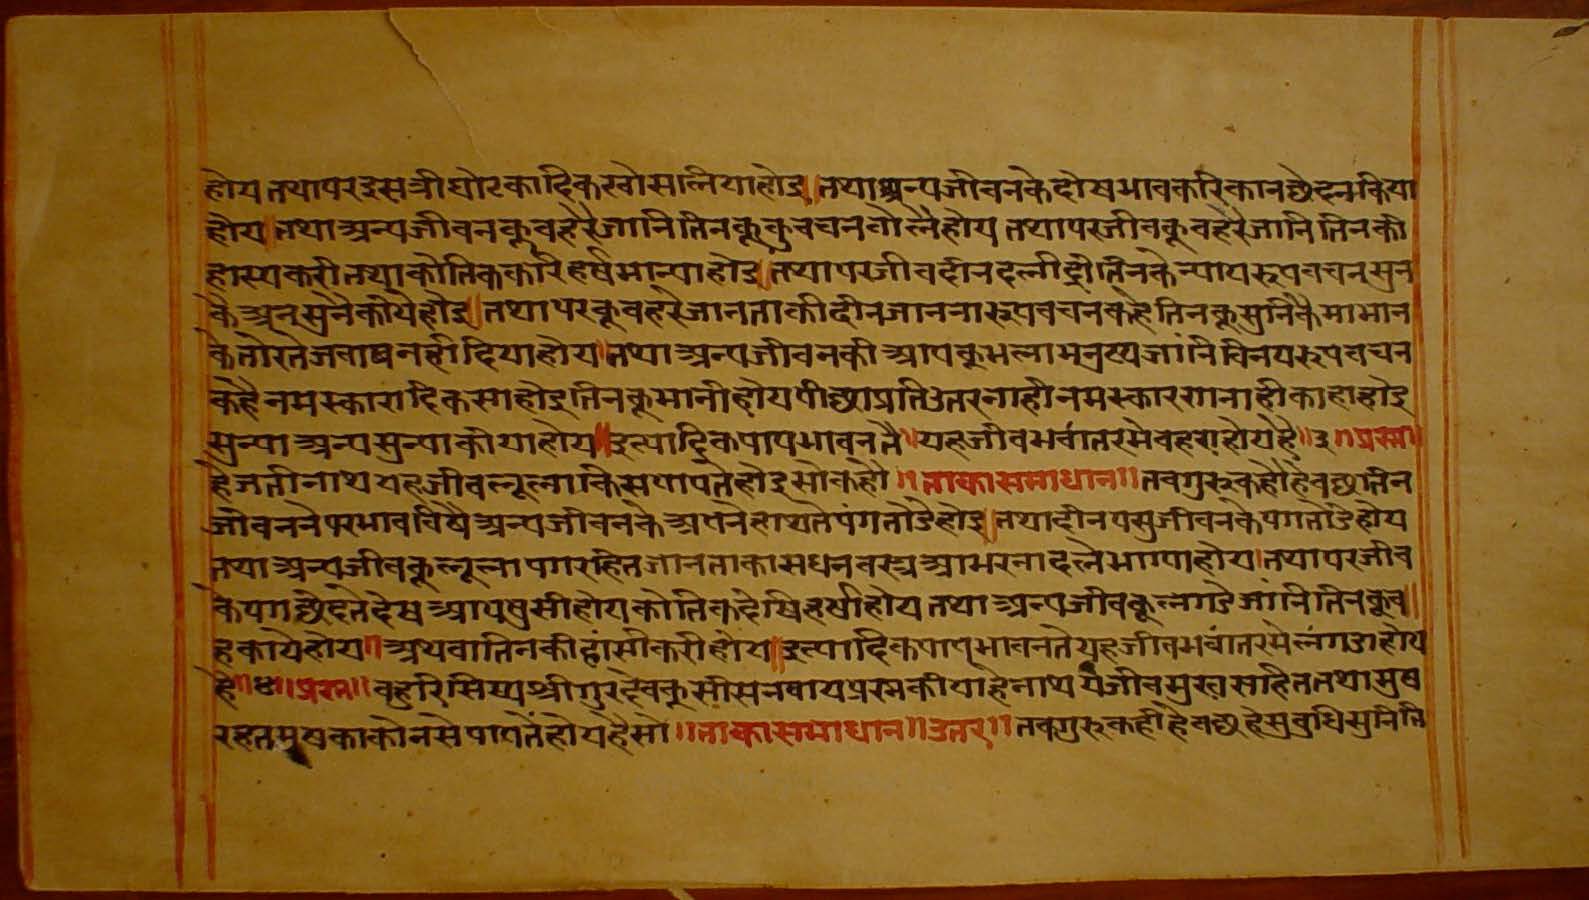 होय तथा पर इसत्री घोटकादिक खोसा लिया होइ ॥ तथा अन्य जीवन के दोष भाव करि कान छेदन किया
होय ॥ तथा अन्य जीवन कू वहरै जानि तिन कू कुवचन बोलै होय तथा पर जीव कू वहरै जानि तिन की
हास्य करी तथा कौतिक करि हर्ष मान्या होइ ॥ तथा पर जीव दीन दलीद्री तिनके न्याय रूप वचन सुन
कै अनसुनै कीये होइ ॥ तथा पर कू वहरे जान ताकी दीन जानना रूप वचन कहै तिन कू सुनिकै मा मान
के तोर ते जवाब नही दिया होय ॥ तथा अन्य जीवन की आप कू भला मनख्य जांनि विनय रूप वचन
कहै नमस्कारादिक सा होइ तिन कू मानी होय पीछा प्रति उतर नाही नमस्कार नाही काहा होइ
सुन्या अन्य सुन्या कीया होय ॥ इत्यादिक पाप भावन तै ॥ यह जीव भवांतर मे वहरा होय है ॥ ३ ॥ प्रस्न ॥
हे जती नाथ यह जीव लूला किस पाप तै होइ सो कहौ ॥ ताका समाधान ॥ तव गुरु कहौ हे वछ तिन
जीवन ने पर भाव विषै अन्य जीवन के अपने हाथ ते पंग तोडे होइ ॥ तथा दीन पसु जीवन के पग तोडे होय
तथा अन्य जीव कू लूला पग रहित जान ताका सधन वस्त्र आभरनादि ले भाग्या होय । तथा पर जीव
के पग छेदते देष आप षुसी होय कौतिक देषि हर्षा होय तथा अन्य जीव कू लगडे जांनि तिन कू व ॥
हकाये होय ॥ अथवा तिन की हांसी करी होय ॥ इत्यादिक पाप भावन ते यह जीव भवांतर मे लंगडा होय
है ॥ ४ ॥ प्रस्न ॥ वहुरि सिष्य श्री गुरदेव कू सीस नवाय प्रस्न कीया हे नाथ ये जीव मुख सहित तथा मुष
रहत मुष का कोन से पाप तें होय है सो ॥ ताका समाधान ॥ उतर ॥ तव गुरु कही हे वछ हे सुवुधि सुनि ति